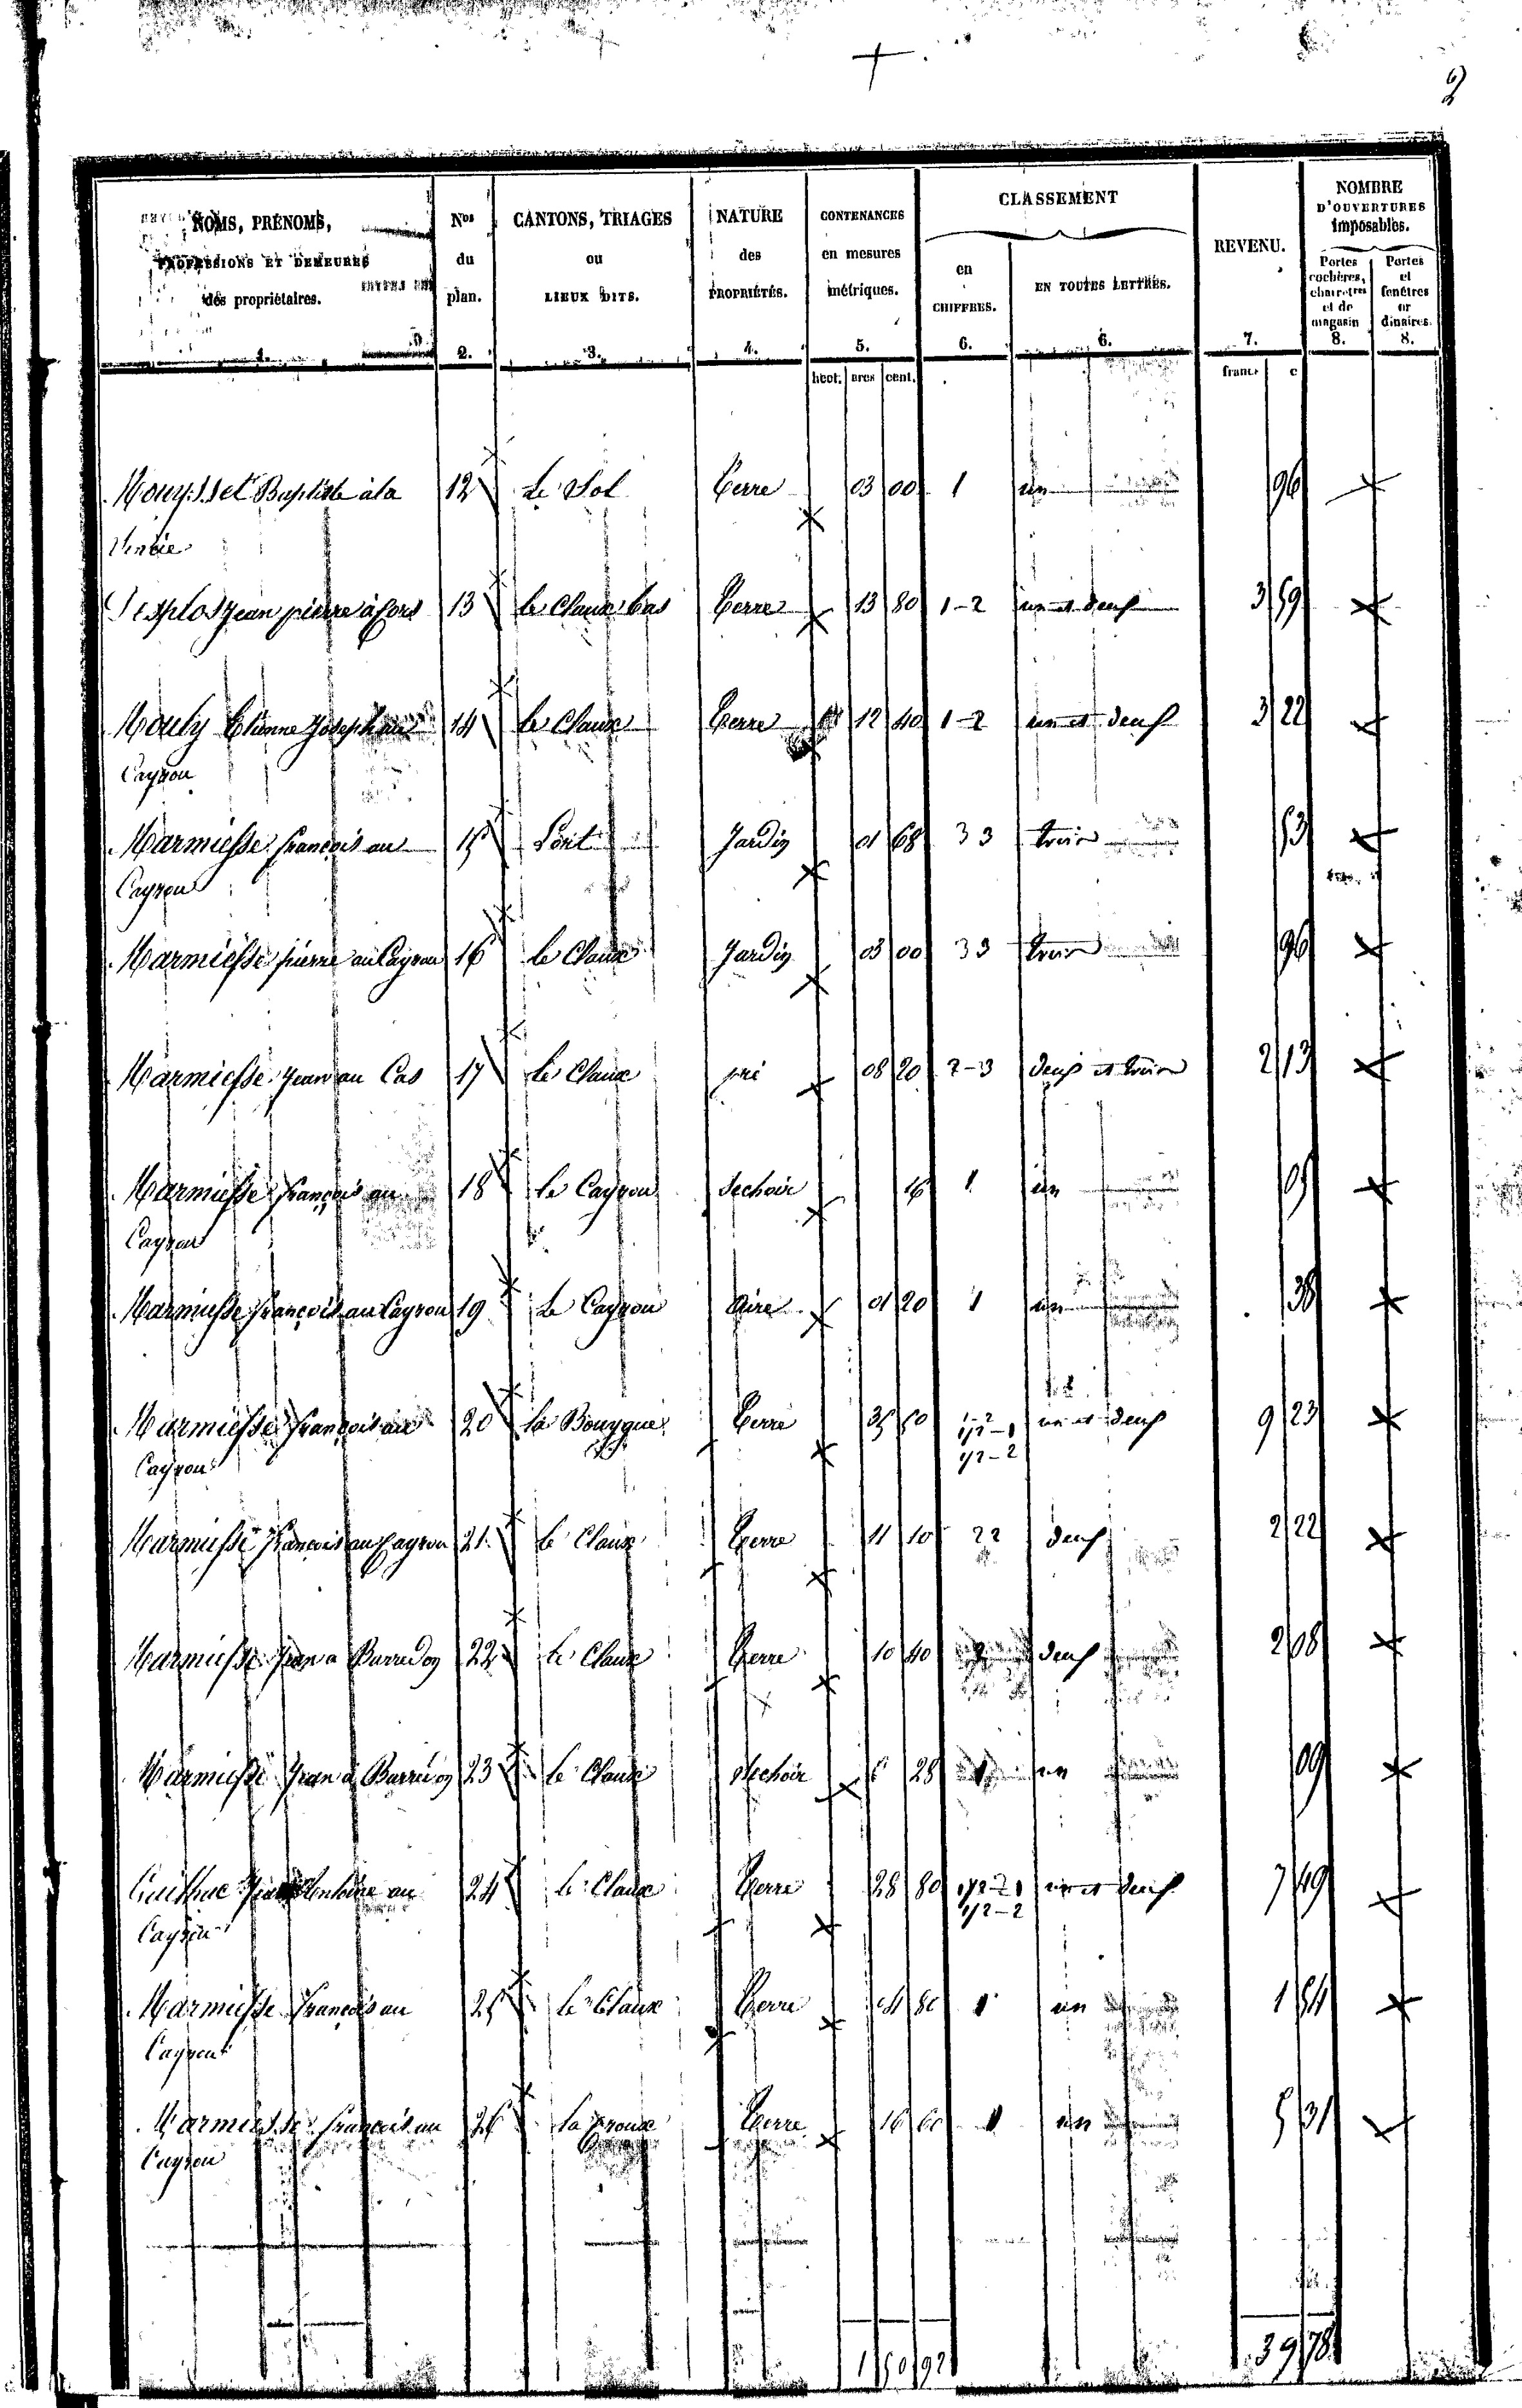 2
NOMS, PRÉNOMS,
PROFESSIONS ET DEMEURES
des propriétaires.
1.
Nos
du
plan.
2.
CANTONS, TRIAGES
ou
LIEUX DITS.
3.
NATURE
des
PROPRIÉTÉS.
4.
CONTENANCES
en mesures
métriques.
5.
hect. ares cent.
CLASSEMENT
en
CHIFFRES.
6.
EN TOUTES LETTRES.
6.
REVENU.
7.
francs c
NOMBRE
D'OUVERTURES
imposables.
Portes
cochères,
charretres
et de
magasin
8.
Portes
et
fenêtres
or
dinaires.
8.
Baptiste à la 12 Le Sol Terre 03 00 1 un 96
jean pierre à 13 le Claux bas Terre 13 80 1-2 un et deux 3 59
Mouly Etienne Joseph au 14 le Claux Terre 12 40 1-2 un et deux 3 22
Cayrou
Marmiesse françois au 15 Jardin 01 68 3 3 trois 53
Cayrou
Marmiesse pierre au Cayrou 16 le Claux Jardin 03 00 3 3 trois 96
Marmiesse Jean au Cas 17 Le Claux pré 08 20 2-3 deux et trois 2 13
Marmiesse françois au 18 le Cayrou Sechoir 16 1 un 05
Cayrou
Marmiesse françois au Cayrou 19 Le Cayrou Aire 01 20 1 un 38
Marmiesse françois au 20 la Bouygue Terre 35 50 1-2 un et deux 9 23
1/2-1
1/2-2
Cayrou
Marmiesse françois au Cayrou 21 le Claux Terre 11 10 2 2 deux 2 22
Marmiesse Jean a Barredon 22 Le Claux Terre 10 40 2 deux 2 08
Marmiesse Jean à Barredon 23 le Claux Sechoir 28 1 un 09
Antoine au 24 le Claux Terre 28 80 1/2-1 un et deux 7 49
1/2-2
Cayrou
Marmiesse françois au 25 le Claux Terre 04 80 1 un 1 54
Cayrou
Marmiesse françois au 26 Terre 16 60 1 un 5 31
Cayrou
1 50 92
39 78